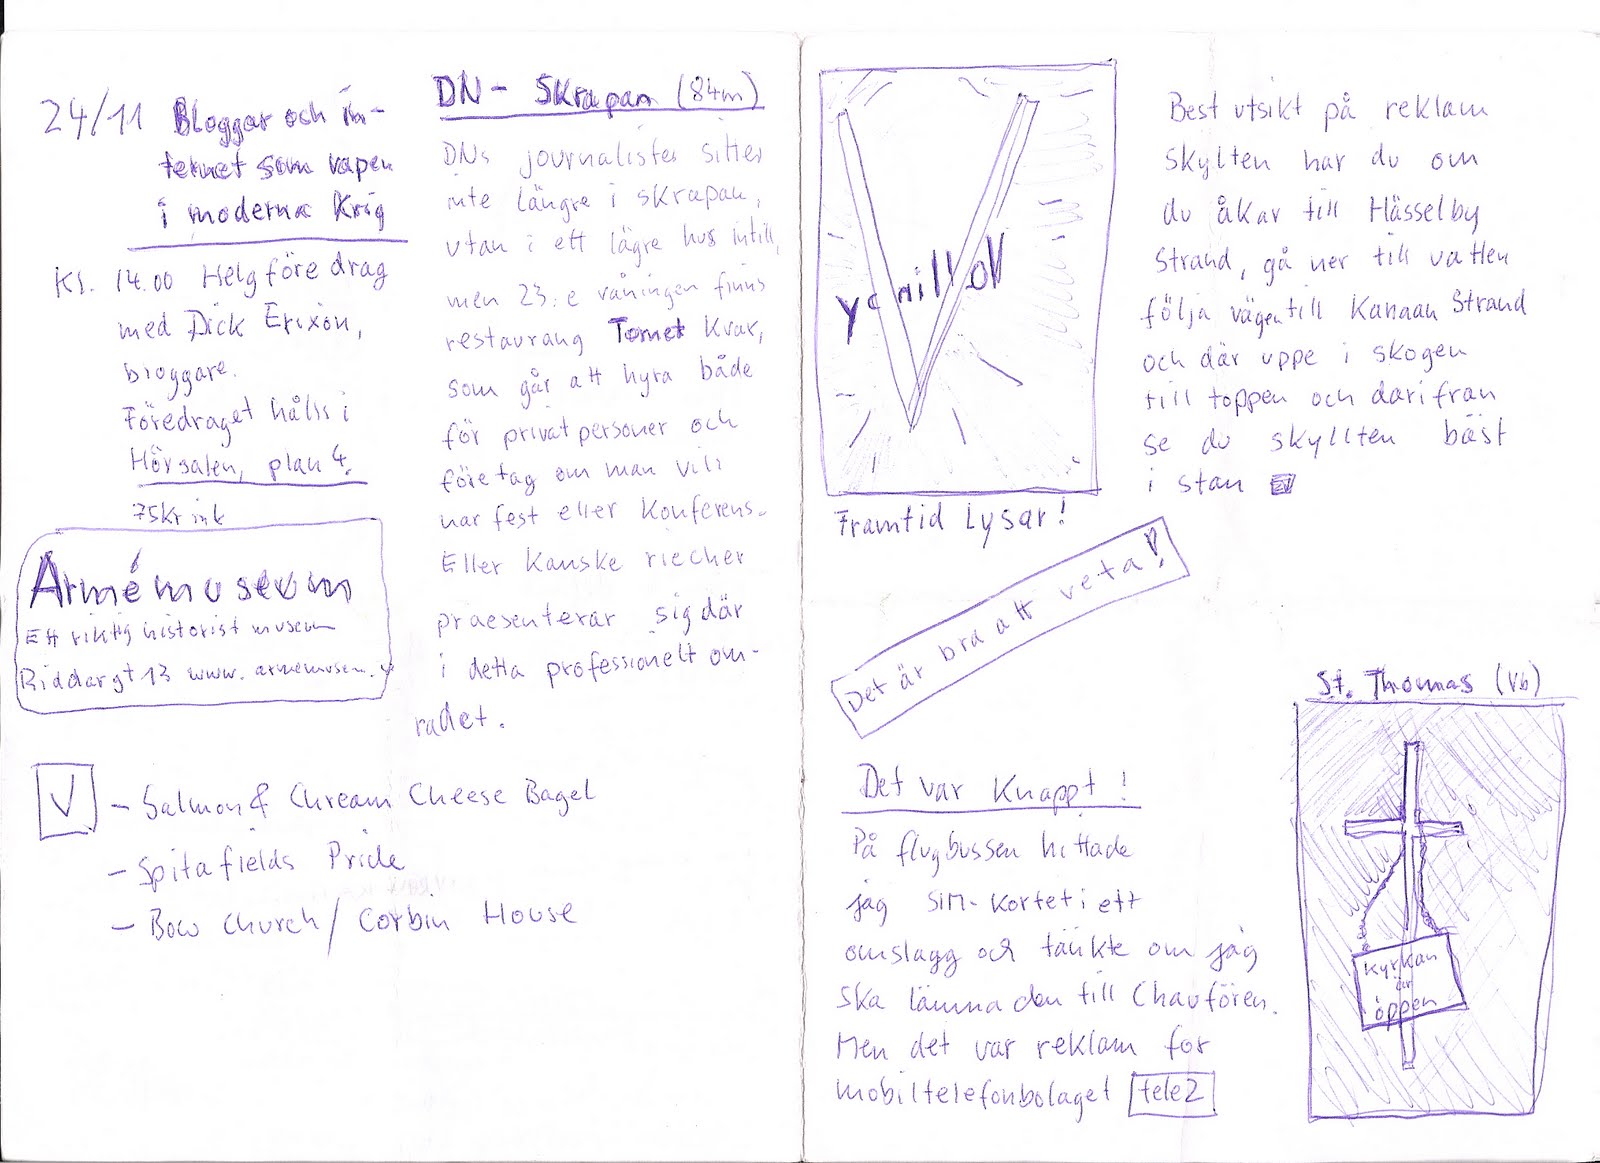 24/11 Bloggar och in-
ternet som vapen
i moderna Krig
Kl. 14.00 Helgföredrag
med Dick Erixon,
bloggare.
Föredraget hålls i
Hörsalen, plan 4.
75kr ink
Armémuseum
Ett riktig historist museum
Riddargt 13 www. armemuseum.
DN- Skrapan (84m)
DNs journalister sitter
inte längre i skrapan,
utan i ett lägre hus intill,
men 23:e våningen finns
restaurang Tornet kvar,
som går att hyra både
för privatpersoner och
företag om man vill
har fest eller Konferens.
Eller Kanske riecher
praesenterar sig där
i detta professionelt om-
radet.
V
- Salmon & Chream Cheese Bagel
- Spitafields Pride
- Bow Church / Corbin House
Framtid Lysar!
Best utsikt på reklam
skylten har du om
du åkar till Hässelby
Strand, gå ner till vatten
följa vägen till Kanaan Strand
och där uppe i skogen
till toppen och darifran
se du skyllten bäst
i stan
Det är bra att veta!
Det var Knappt!
På flygbussen hittade
jag SIM-kortet i ett
omslagg och tänkte om jag
ska lämna den till Chauffören.
Men det var reklam for
mobiltelefonbolaget tele2
St. Thomas (Vb)
Kyrkan
är
öppen